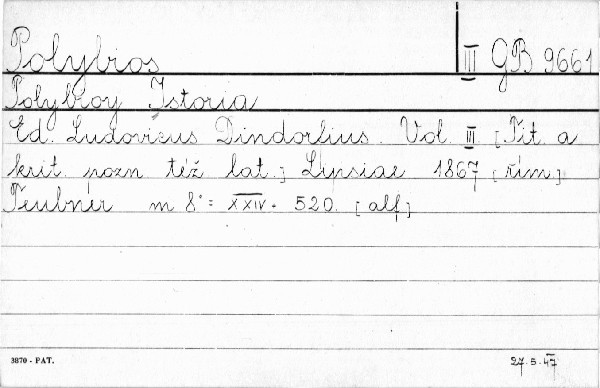 Polybios III GB 9661
Polybioy Istoria
Ed. Ludovicus Dindorfius. Vol. III. [Tit. a
krit. pozn též lat.] Lipsiae 1867 [řím]
Teubner m 8° = XXIV - 520. [alf]
3870 - PAT. 27.5.47